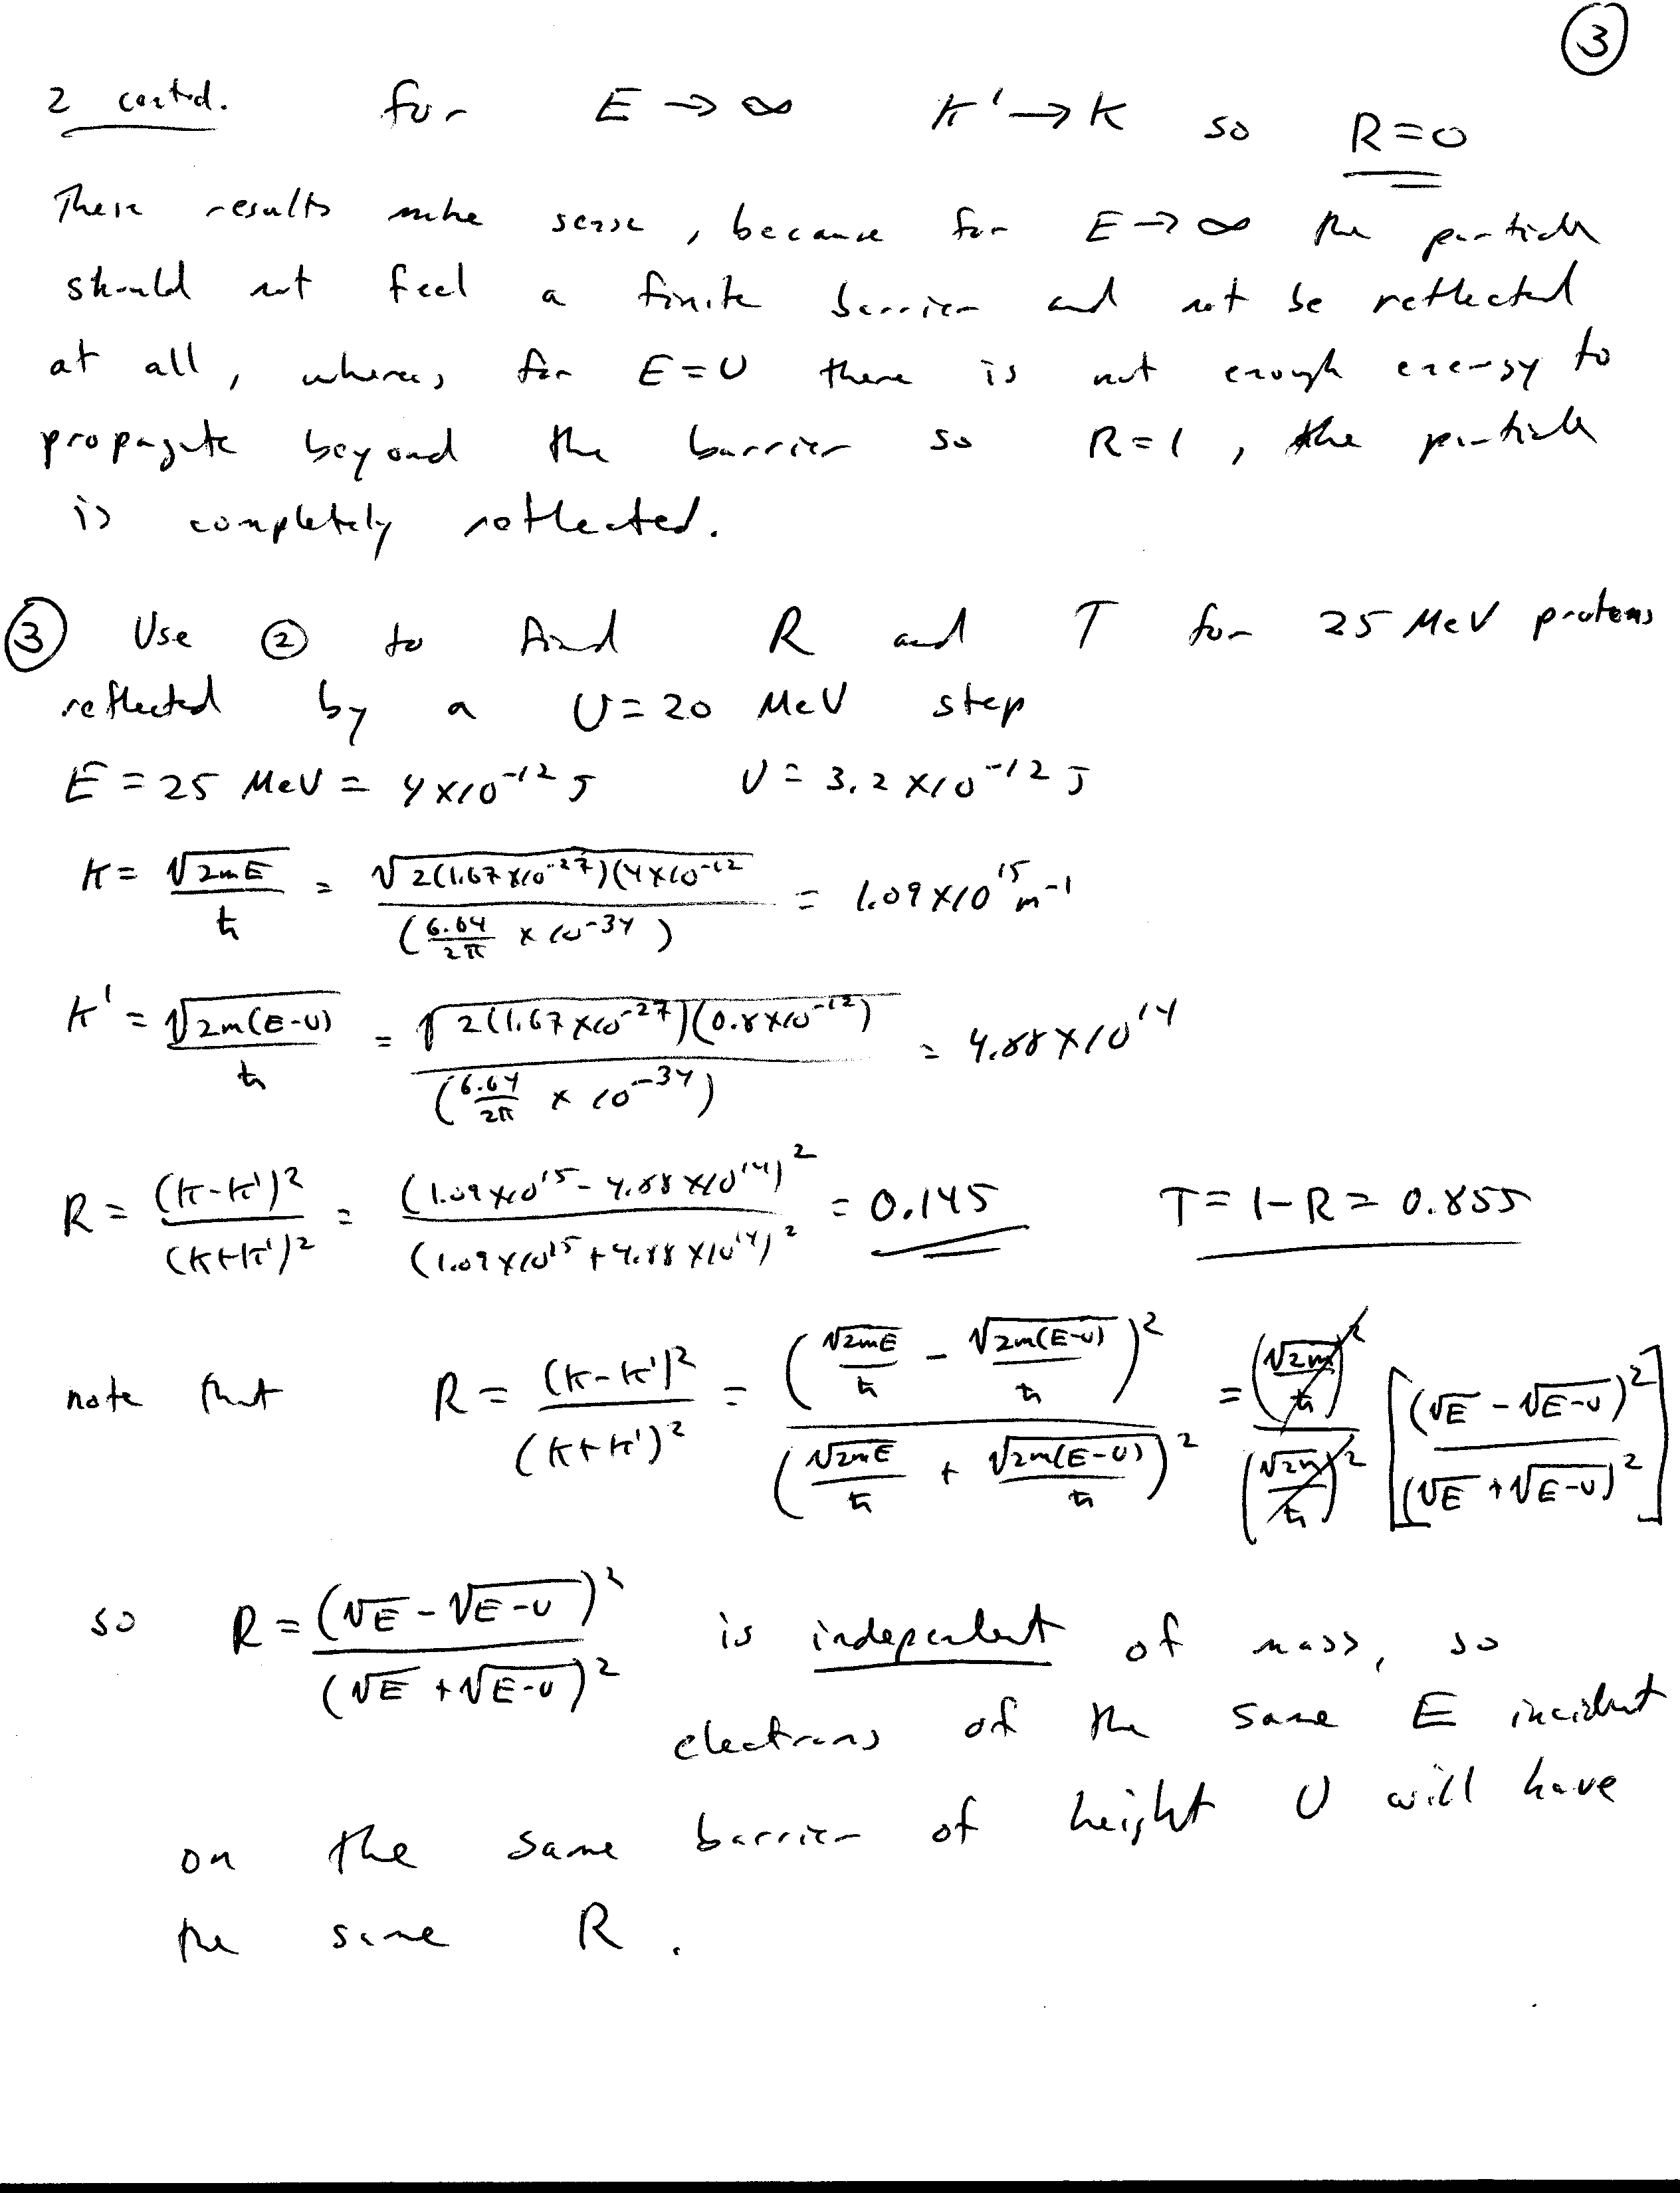 3
2 contd. for E → ∞ k' → k so R=0
These results make sense, because for E → ∞ the particle
should not feel a finite barrier and not be reflected
at all, whereas for E=U there is not enough energy to
propagate beyond the barrier so R=1, the particle
is completely reflected.
③ Use ② to find R and T for 25 MeV protons
reflected by a U=20 MeV step
E = 25 MeV = 4×10^-12 J U = 3.2×10^-12 J
k = √(2mE)/ħ = √(2(1.67×10^-27)(4×10^-12)/(6.64/2π × 10^-34) = 1.09×10^15 m^-1
k' = √(2m(E-U))/ħ = √(2(1.67×10^-27)(0.8×10^-12))/(6.64/2π × 10^-34) = 4.88×10^14
R = (k-k')²/(k+k')² = (1.09×10^15 - 4.88×10^14)²/(1.09×10^15 + 4.88×10^14)² = 0.145 T = 1-R = 0.855
note that R = (k-k')²/(k+k')² = (√(2mE)/ħ - √(2m(E-U))/ħ)²/(√(2mE)/ħ + √(2m(E-U))/ħ)² = (√(2m)/ħ)²/(√(2m)/ħ)² [(√E - √(E-U))²/(√E + √(E-U))²]
so R = (√E - √(E-U))²/(√E + √(E-U))² is independent of mass, so
electrons of the same E incident
on the same barrier of height U will have
the same R.